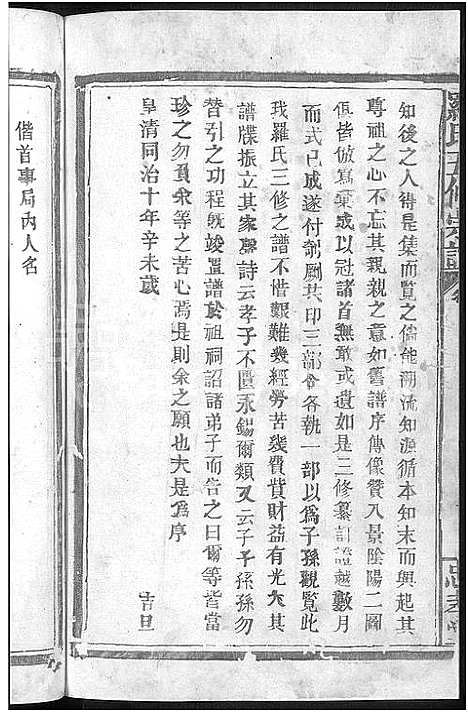 羅氏五修宗譜
知後之人得是集而覽之儒能溯流知源循本知末而興起其
尊祖之心不忘其親親之意如舊譜序傳像贊八景陰陽二圖
俱皆倣寫槀成以冠諸首無敢或遺如是三修纂訂證越數月
而式已成遂付剞劂共印三部令各執一部以為子孫觀覽此
我羅氏三修之譜不惜艱難幾經勞苦幾費貲財益有光大其
譜牒振立其家聲詩云孝子不匱永錫爾類又云子子孫孫勿
替引之功程旣竣置譜於祖祠詔諸弟子而告之曰爾等皆當
珍之勿負余等之苦心焉是則余之願也夫是為序
皇清同治十年辛未歲 吉旦
偕首事局內人名